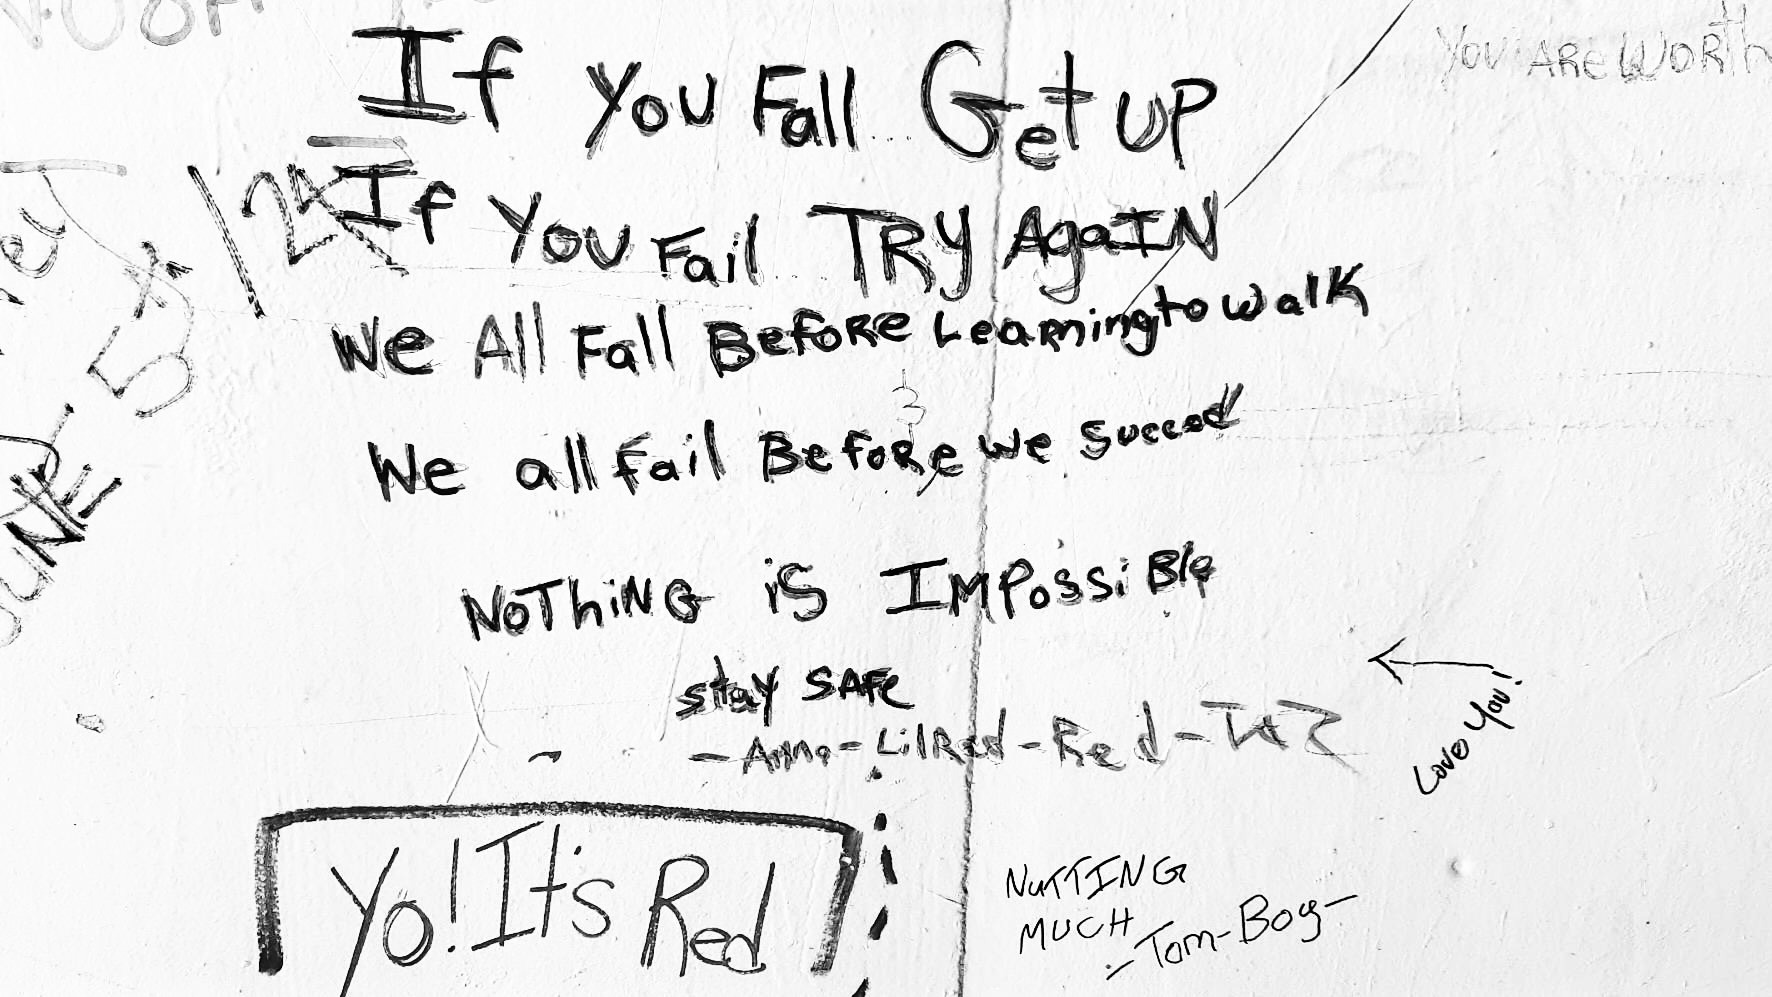 If You Fall... Get UP
If You Fail... TRY AgaIN
We All Fall Before Learning to walk
We all fail Before we Succed
NoThiNG iS IMPossiBle
stay SAFe
LilRed - Red -
Yo! It's Red
YOU ARE WORTH
Love You!
NuTTING
MUCH
- Tom-Boy -
5*
124
JUNE